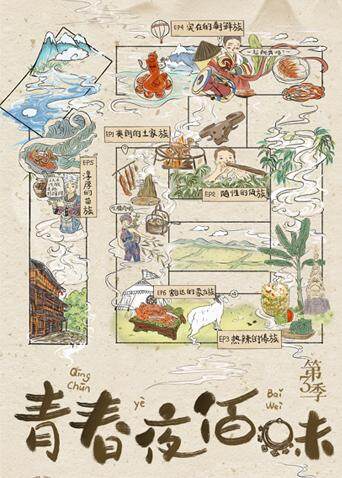 EP4 实在的朝鲜族
EP1 爽朗的土家族
EP5 淳厚的苗族
EP2 随性的佤族
EP6 豁达的蒙古族
EP3 热辣的傣族
第3季
Qing Chūn yè Bai Wei
青春夜佰味